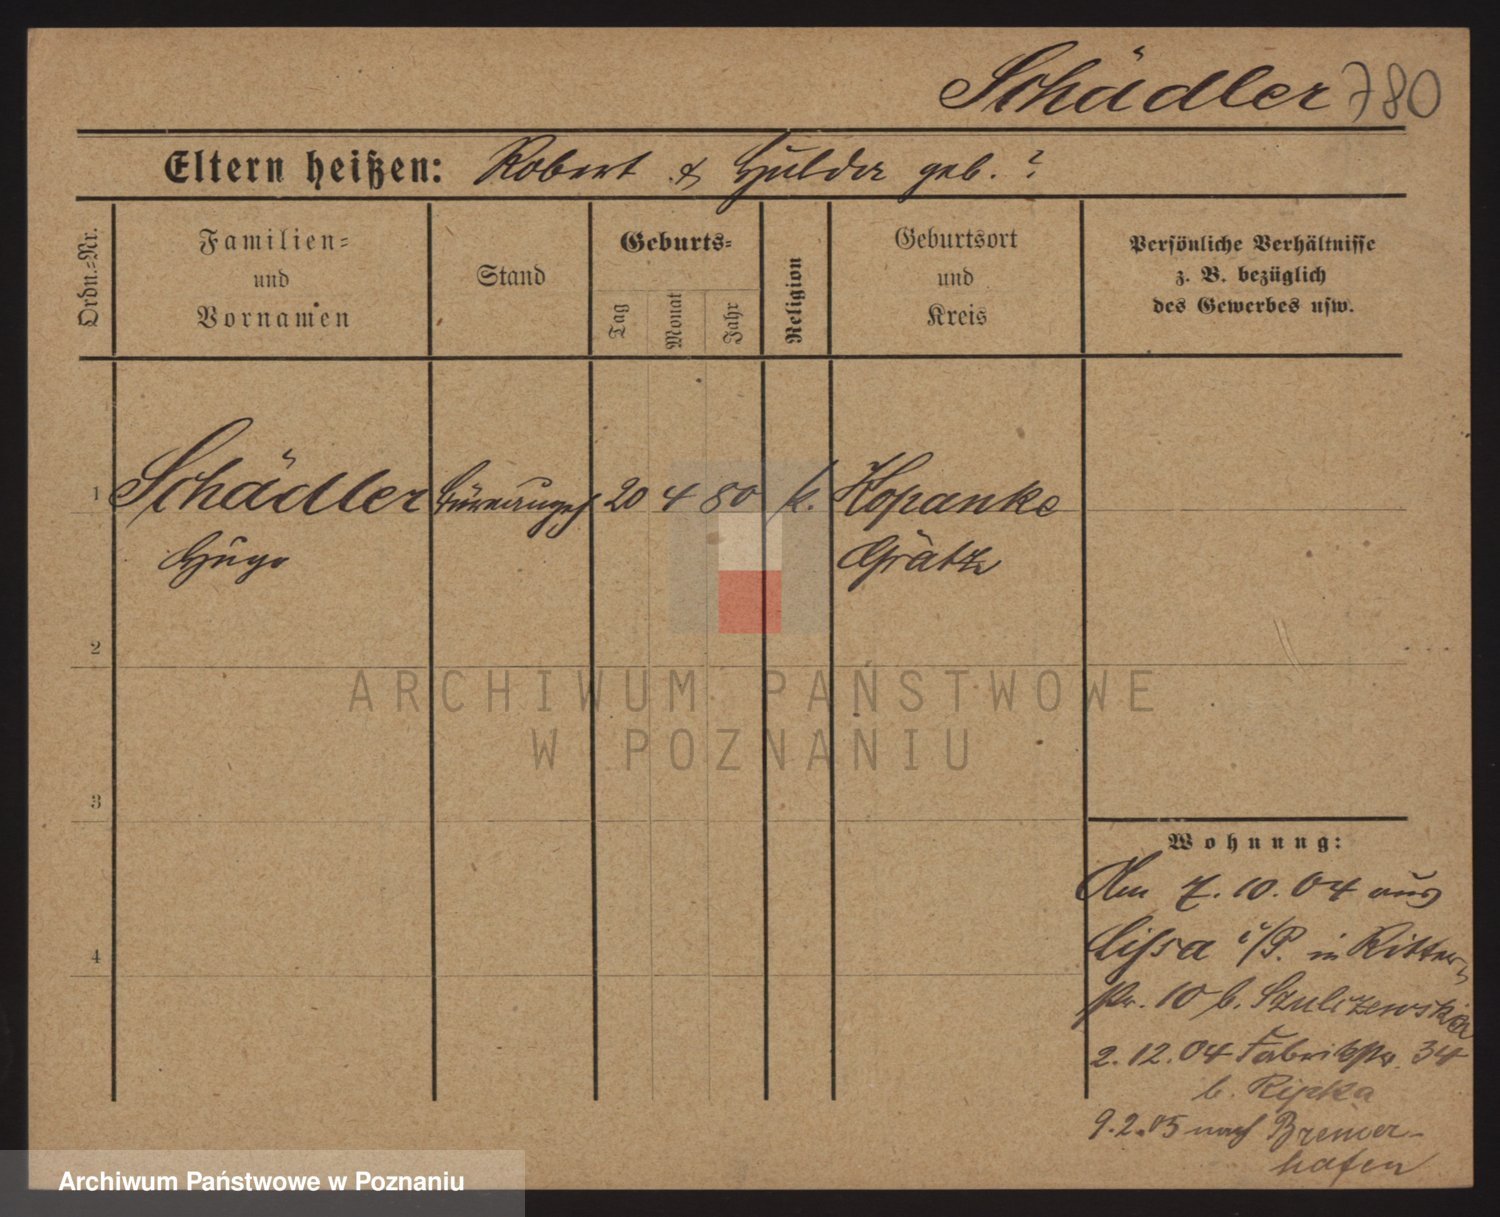 Schädler 780
Eltern heißen: Robert & Hulda geb. ?
Ordn.-Nr.
Familien-
und
Vornamen
Stand
Geburts-
Tag
Monat
Jahr
Religion
Geburtsort
und
Kreis
Persönliche Verhältnisse
z. B. bezüglich
des Gewerbes usw.
1 Schädler 20 4 80 k. Kopanke
Hugo Grätz
2
3
4
ARCHIWUM PAŃSTWOWE
W POZNANIU
Wohnung:
Am 7.10.04 aus
Lissa i/P. in Ritter-
str. 10 b. Szulczewski
2.12.04 Fabrikstr. 34
b. Ripka
9.2.05 nach Bremer-
hafen
Archiwum Państwowe w Poznaniu